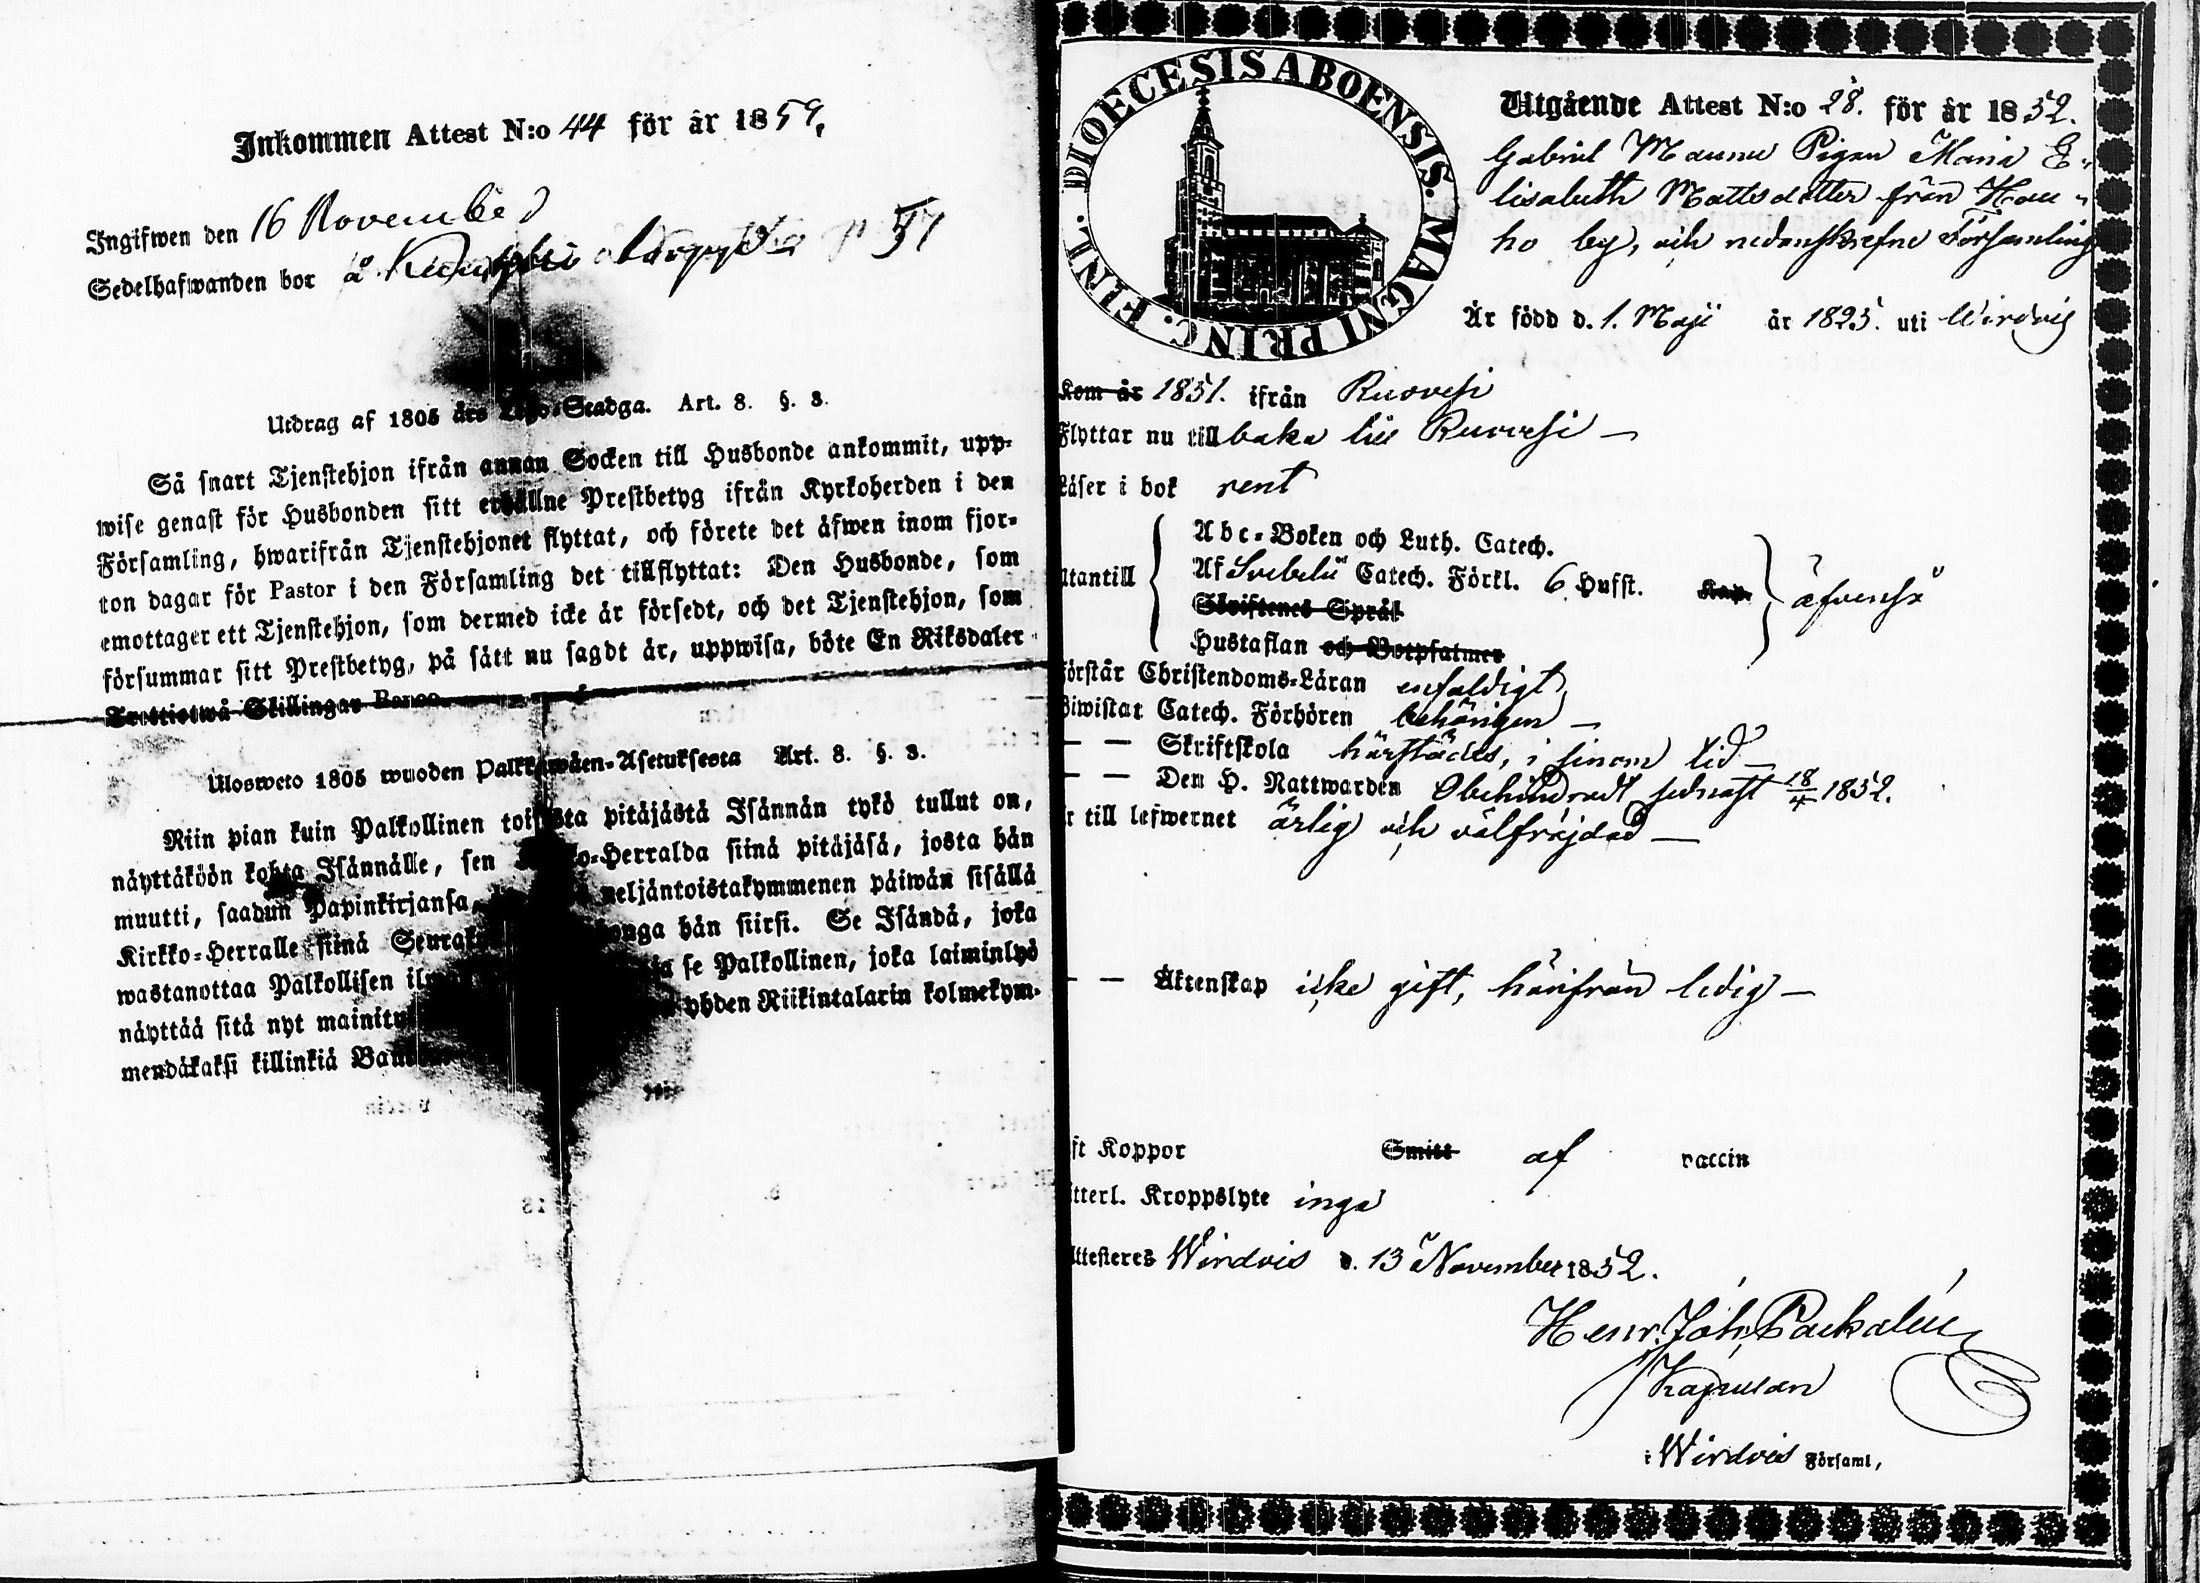 Inkommen Attest N:o 44 för år 1859,
Ingifwen den 16 November
Sedelhafwanden bor å
Utdrag af 1805 års Lego-Stadga. Art. 8. §. 3.
Så snart Tjenstehjon ifrån annan Socken till Husbonde ankommit, upp-
wise genast för Husbonden sitt erhållne Prestbetyg ifrån Kyrkoherden i den
Församling, hwarifrån Tjenstehjonet flyttat, och förete det äfwen inom fjor-
ton dagar för Pastor i den Församling det tillflyttat: Den Husbonde, som
emottager ett Tjenstehjon, som dermed icke är försedt, och det Tjenstehjon, som
försummar sitt Prestbetyg, på sätt nu sagdt är, uppwisa, böte En Riksdaler
Trettiotwå Skillingar Banco.
Ulosweto 1805 wuoden Palkkawäen-Asetuksesta Art. 8. §. 3.
Niin pian kuin Palkollinen toisesta pitäjästä Isännän tykö tullut on,
näyttäköön kohta Isännälle, sen Kirkko-Herralda siinä pitäjäsä, josta hän
muutti, saadun Papinkirjansa, neljäntoistakymmenen päiwän sisällä
Kirkko-Herralle siinä hän siirsi. Se Isändä, joka
wastanottaa Palkollisen ja se Palkollinen, joka laiminlyö
näyttää sitä nyt yhden Riikintalarin kolmekym-
mendäkaksi killinkiä
DIOECESIS ABOENSIS. MAGNI PRINC. FINL.
Utgående Attest N:o 28. för år 1852.
Gabriel Maunu Pigan Maria E-
lisabeth Mattsdotter från Hau-
ho by, och nedanskrefne Församling
Är född d. 1. Maji år 1825. uti Wirdois
Kom år 1851. ifrån Ruovesi
Flyttar nu tillbaka till Ruovesi —
Läser i bok rent
utantill
Abc-Boken och Luth. Catech.
Af Svebelii Catech. Förkl. 6 Hufst. Kap. äfvenså
Skriftenes Språk
Hustaflan och Botpsalmer
Förstår Christendoms-Läran enfaldigt,
Biwistat Catech. Förhören behörigen —
— — Skriftskola härstädes, i sinom tid —
— — Den H. Nattwarden Obehindradt sednast 18/4 1852.
Är till lefwernet ärlig och välfräjdad —
— — Äktenskap icke gift, härifrån ledig —
Haft Koppor Smitt af vaccin
Ytterl. Kroppslyte inga
Attesteres Wirdois d. 13 November 1852.
Henr. Joh. Packalén
Kapellan
i Wirdois Församl,